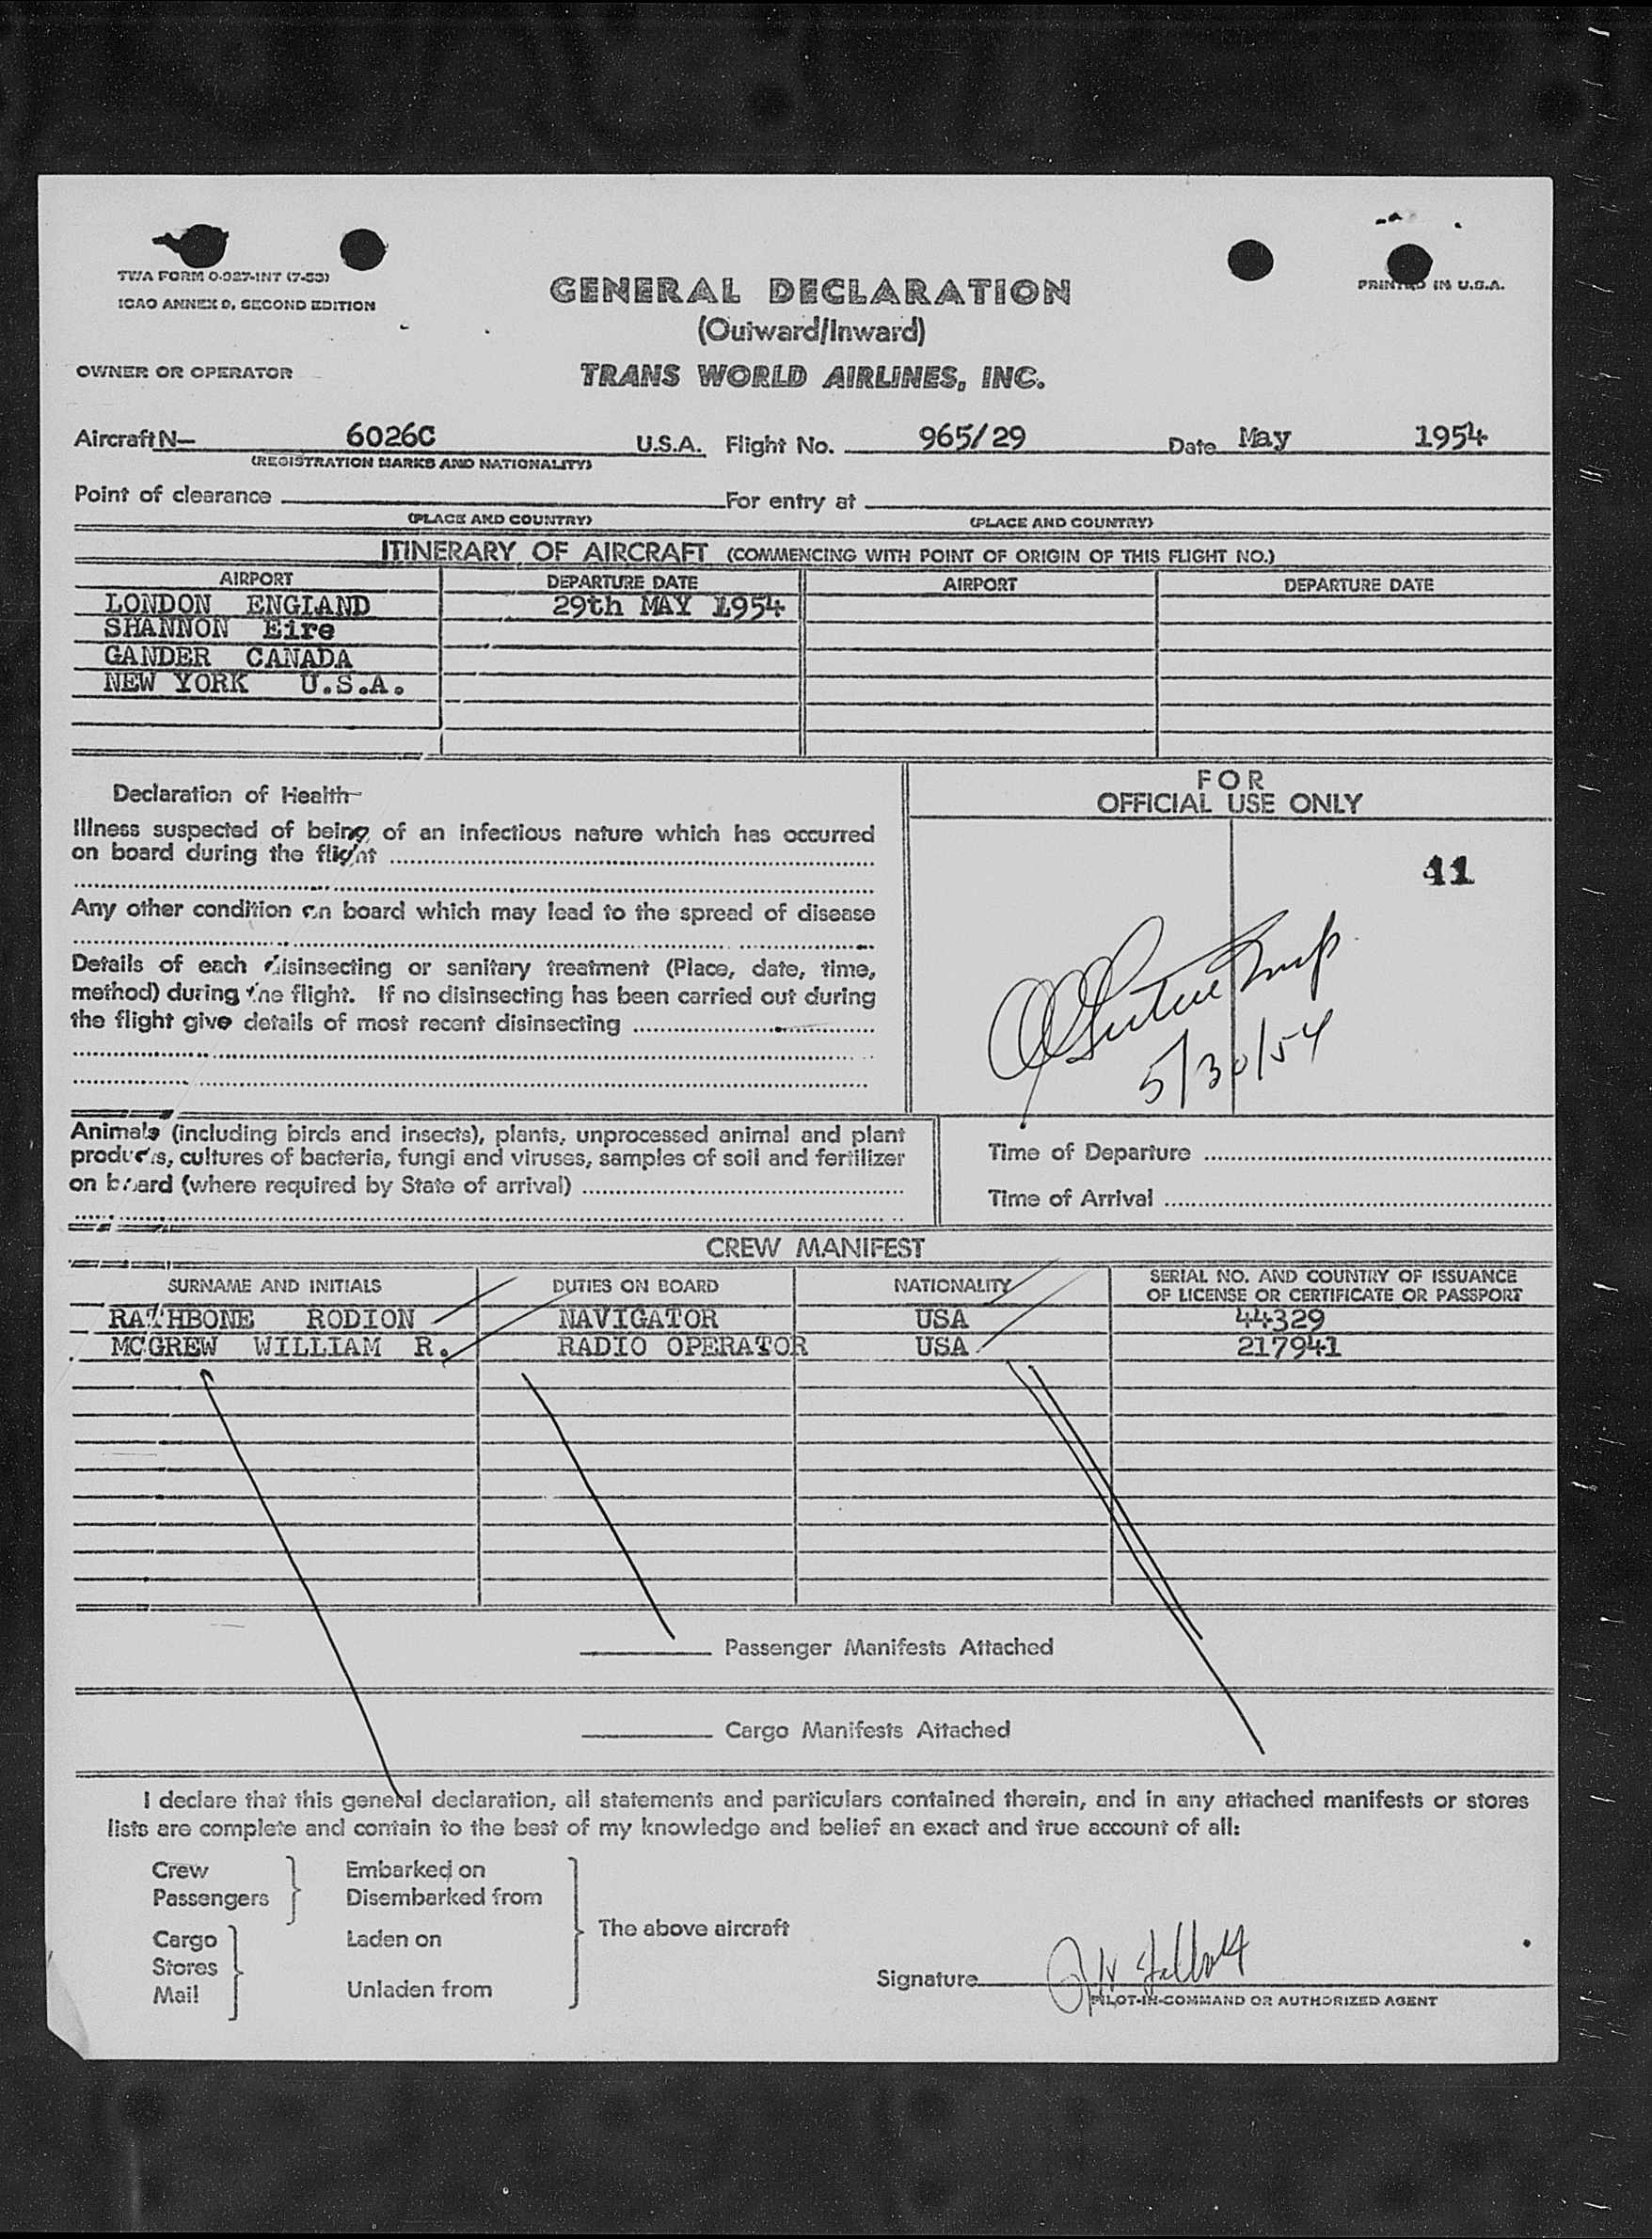 TWA FORM O-927-INT (7-53)
ICAO ANNEX 9, SECOND EDITION
PRINTED IN U.S.A.
GENERAL DECLARATION
(Outward/Inward)
OWNER OR OPERATOR
TRANS WORLD AIRLINES, INC.
Aircraft N— 6026C U.S.A. Flight No. 965/29 Date May 1954
(REGISTRATION MARKS AND NATIONALITY)
Point of clearance For entry at
(PLACE AND COUNTRY) (PLACE AND COUNTRY)
ITINERARY OF AIRCRAFT (COMMENCING WITH POINT OF ORIGIN OF THIS FLIGHT NO.)
AIRPORT DEPARTURE DATE AIRPORT DEPARTURE DATE
LONDON ENGLAND 29th MAY 1954
SHANNON Eire
GANDER CANADA
NEW YORK U.S.A.
Declaration of Health
Illness suspected of being of an infectious nature which has occurred
on board during the flight
Any other condition on board which may lead to the spread of disease
Details of each disinsecting or sanitary treatment (Place, date, time,
method) during the flight. If no disinsecting has been carried out during
the flight give details of most recent disinsecting
FOR
OFFICIAL USE ONLY
11
5/30/54
Animals (including birds and insects), plants, unprocessed animal and plant
products, cultures of bacteria, fungi and viruses, samples of soil and fertilizer
on board (where required by State of arrival)
Time of Departure
Time of Arrival
CREW MANIFEST
SURNAME AND INITIALS DUTIES ON BOARD NATIONALITY SERIAL NO. AND COUNTRY OF ISSUANCE
OF LICENSE OR CERTIFICATE OR PASSPORT
RATHBONE RODION NAVIGATOR USA 44329
MCGREW WILLIAM R. RADIO OPERATOR USA 217941
Passenger Manifests Attached
Cargo Manifests Attached
I declare that this general declaration, all statements and particulars contained therein, and in any attached manifests or stores
lists are complete and contain to the best of my knowledge and belief an exact and true account of all:
Crew Embarked on
Passengers Disembarked from
The above aircraft
Cargo Laden on
Stores
Mail Unladen from
Signature
PILOT-IN-COMMAND OR AUTHORIZED AGENT